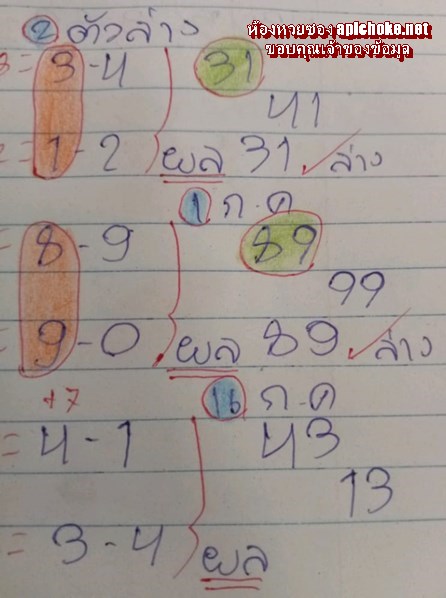 ห้องหวยซอง apichoke.net
ขอบคุณเจ้าของข้อมูล
2 ตัวล่าง
3 = 3-4 31
41
= 1-2 ผล 31 ✓ ล่าง
1 ก.ค
= 8-9 89
99
= 9-0 ผล 89 ✓ ล่าง
+7 16 ก.ค
= 4-1 43
13
= 3-4 ผล